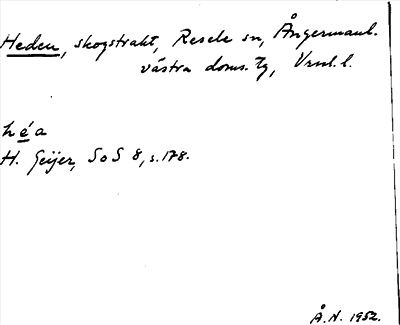 Heden, skogstrakt, Resele sn, Ångermanl.
västra doms. tg, Vrnl. l.
héa
H. Geijer, SoS 8, s. 178.
Å.N. 1952.